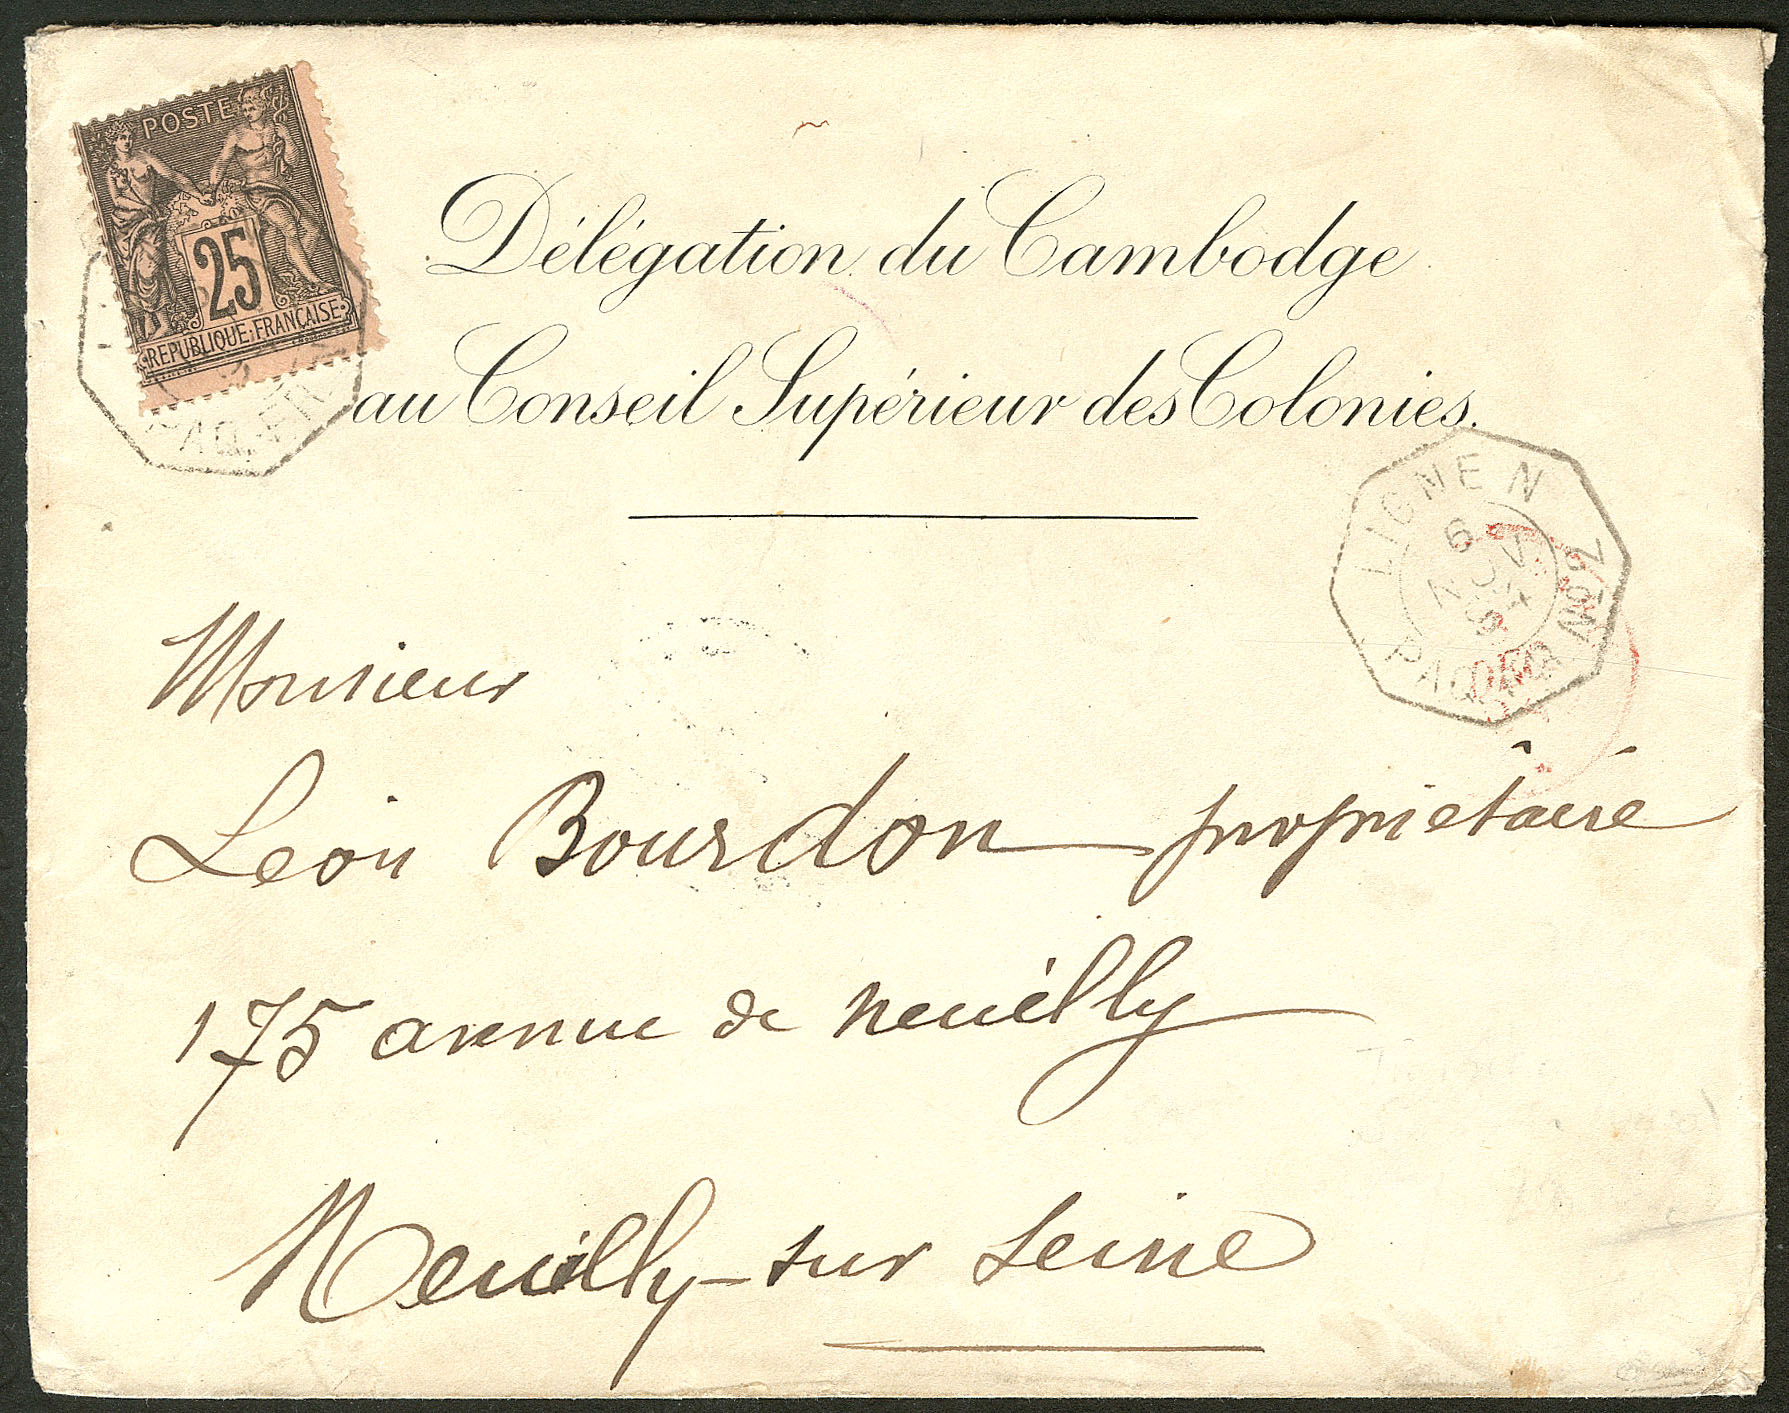 POSTE
25
REPUBLIQUE FRANÇAISE
Délégation du Cambodge
au Conseil Supérieur des Colonies.
LIGNE N
6
NOV
94
PAQ. FR. Nº2
Monsieur
Léon Bourdon propriétaire
175 avenue de Neuilly
Neuilly-sur Seine